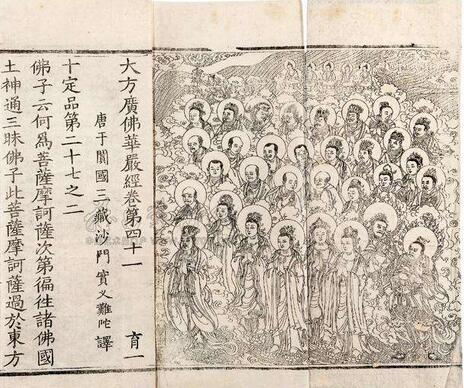 大方廣佛華嚴經卷第四十一　育一
唐于闐國三藏沙門實叉難陀　譯
十定品第二十七之二
佛子云何爲菩薩摩訶薩次第徧往諸佛國
土神通三昧佛子此菩薩摩訶薩過於東方